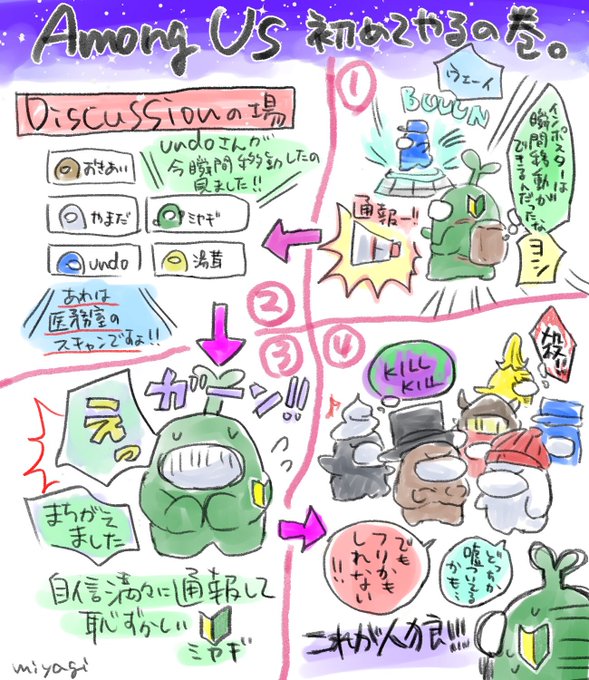 Among Us 初めてやるの巻。
①
ウェーイ
BUUUN
インポスターは
瞬間移動が
できるんだったな
ヨシ
通報ー!!
Discussionの場
undoさんが
今瞬間移動したの
見ました!!
おきあい
やまだ
ミヤギ
undo
湯茸
あれは
医務室の
スキャンですよ!!
②
③
ガーン!!
えっ
まちがえ
ました
自信満々に通報して
恥ずかしい
ミヤギ
miyagi
④
KILL
KILL
殺!!
でも
フリかも
しれない
!!!
どっちか
嘘ついてる
かも…
これが人狼!!!